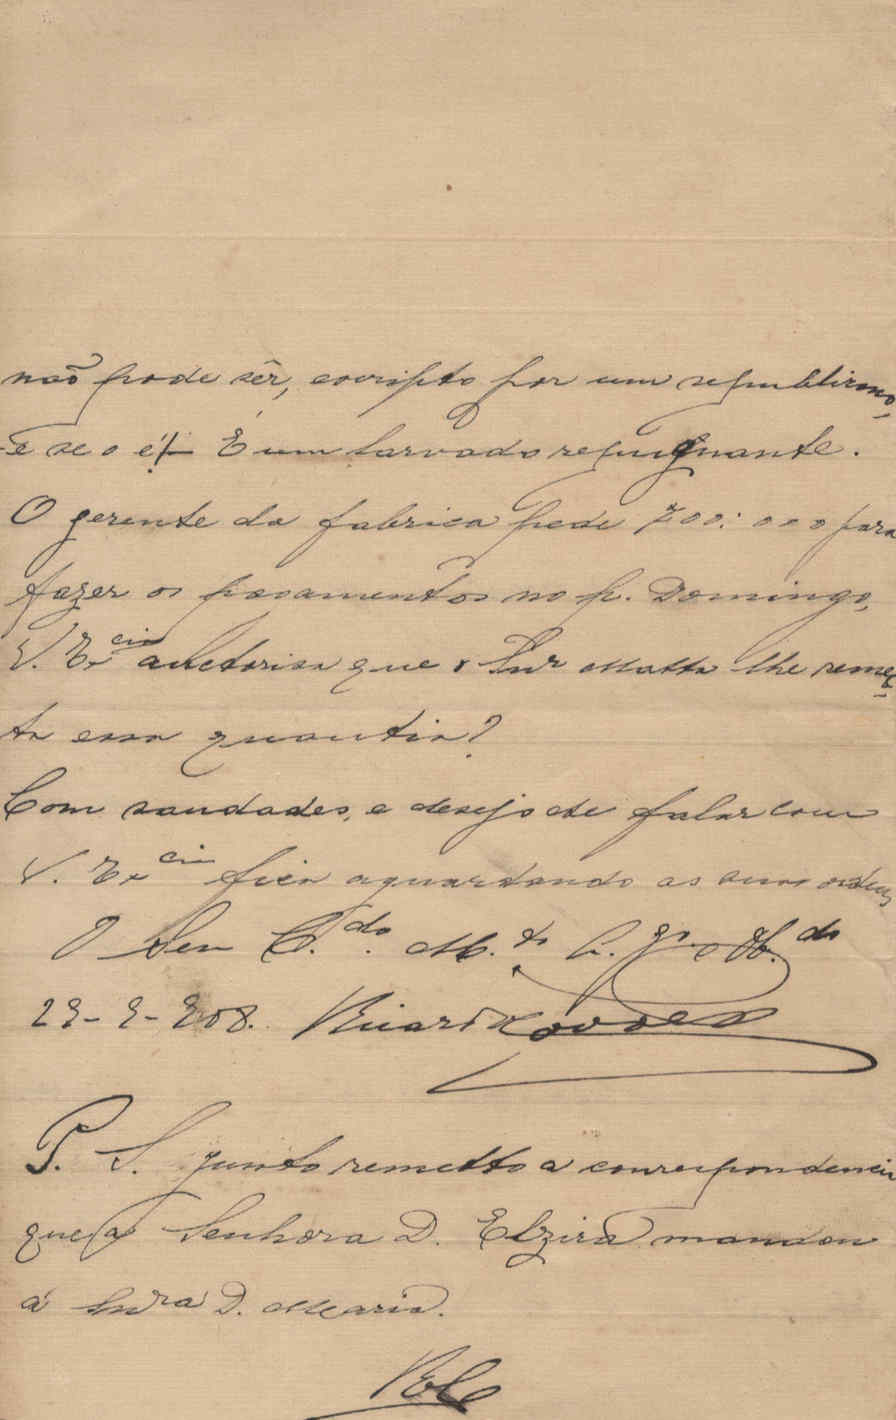 não pode sêr, escripto por um republicano,
e se o é! É um larvado repugnante.
O gerente da fabrica pede 700:000 para
fazer os pagamentos no p. Domingo,
V. Ex.cia auctorisa que o Snr Matta lhe remet-
ta essa quantia?
Com saudades, e desejo de falar com
V. Excia fica aguardando as suas ordens
O Seu C.do M.to e Ob.do
22-2-908. Ricardo
P. S. Junto remetto a correspondencia
que a Senhora D. Elzira mandou
á Snra D. Maria.